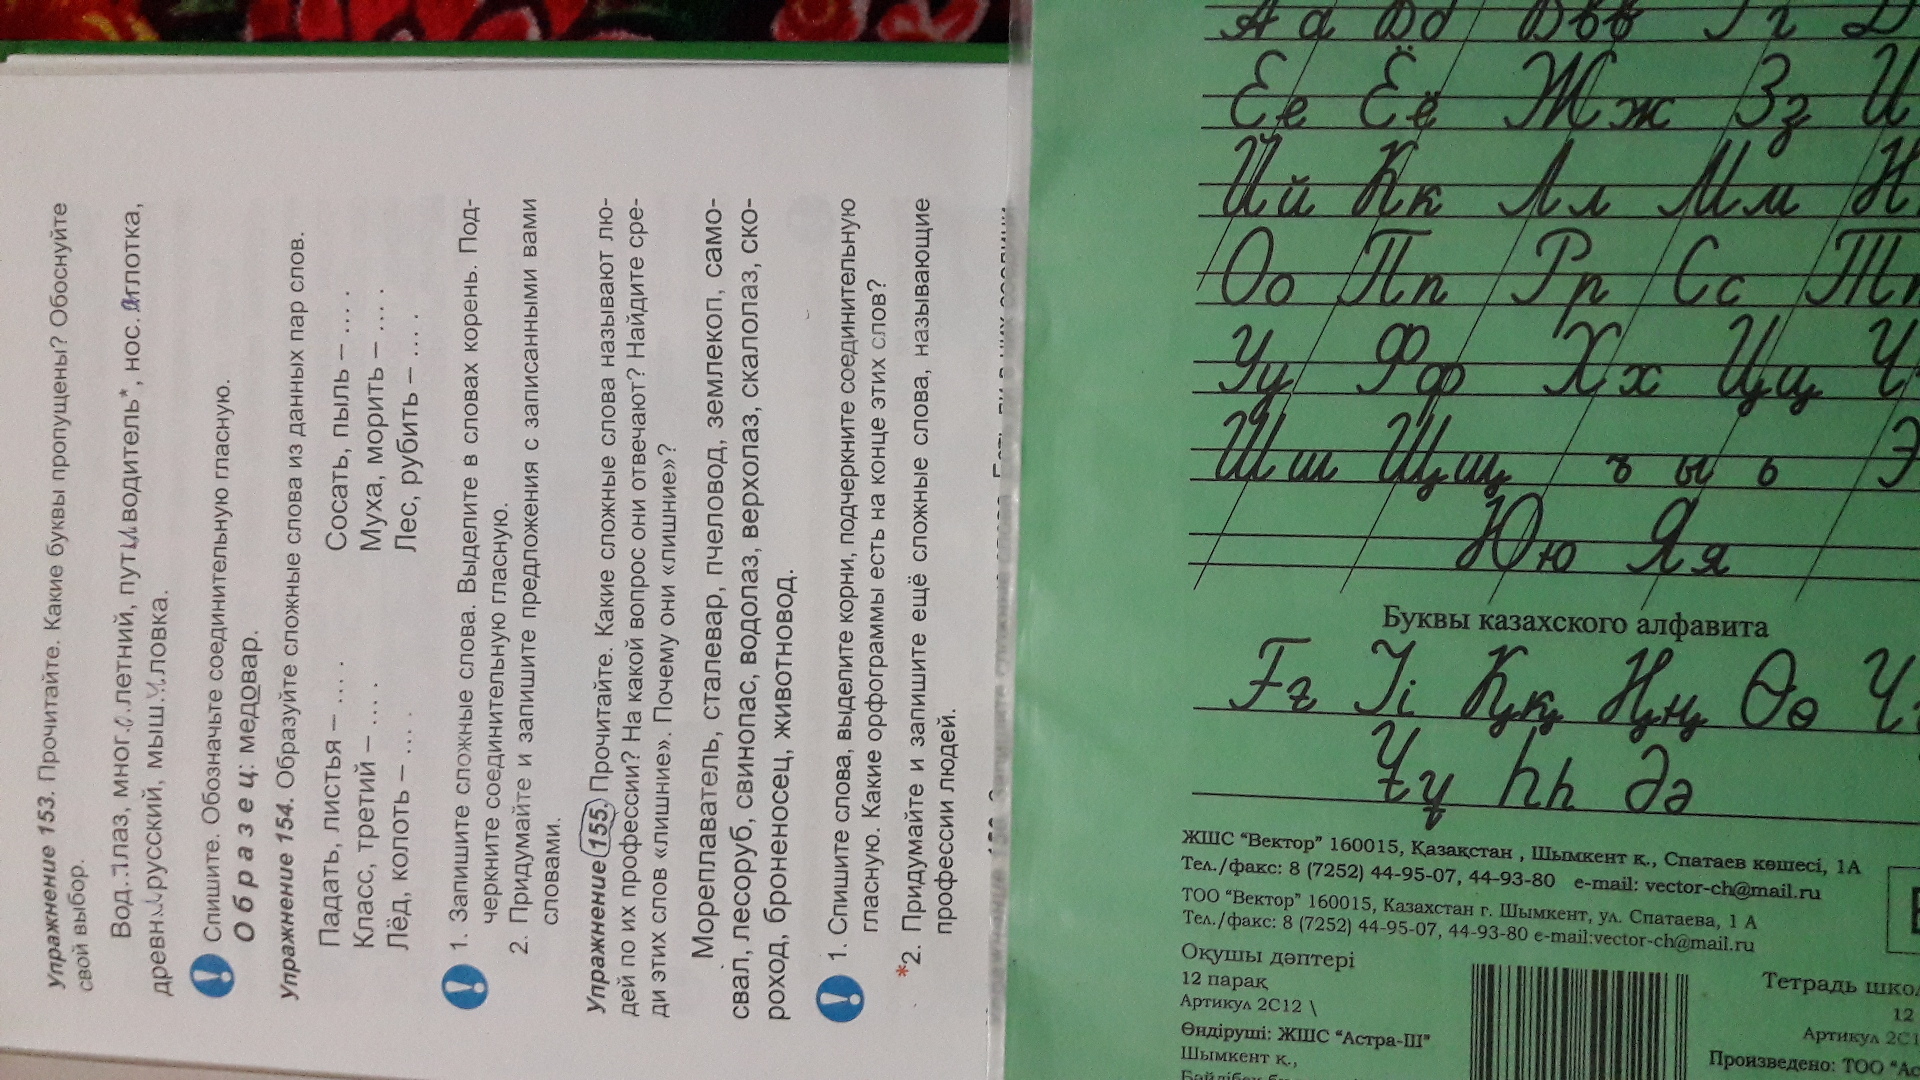 Упражнение 153. Прочитайте. Какие буквы пропущены? Обоснуйте
свой выбор.
Вод..лаз, мног.о.летний, пут.и.водитель*, нос.о.глотка,
древн..русский, мыш..ловка.
Спишите. Обозначьте соединительную гласную.
Образец: медовар.
Упражнение 154. Образуйте сложные слова из данных пар слов.
Падать, листья – ... .
Класс, третий – ... .
Лёд, колоть – ... .
Сосать, пыль – ... .
Муха, морить – ... .
Лес, рубить – ... .
1. Запишите сложные слова. Выделите в словах корень. Под-
черкните соединительную гласную.
2. Придумайте и запишите предложения с записанными вами
словами.
Упражнение 155. Прочитайте. Какие сложные слова называют лю-
дей по их профессии? На какой вопрос они отвечают? Найдите сре-
ди этих слов «лишние». Почему они «лишние»?
Мореплаватель, сталевар, пчеловод, землекоп, само-
свал, лесоруб, свинопас, водолаз, верхолаз, скалолаз, ско-
роход, броненосец, животновод.
1. Спишите слова, выделите корни, подчеркните соединительную
гласную. Какие орфограммы есть на конце этих слов?
*2. Придумайте и запишите ещё сложные слова, называющие
профессии людей.
Ее Ёё Жж Зз И
Йй Кк Лл Мм Н
Оо Пп Рр Сс Тт
Уу Фф Хх Цц Ч
Шш Щщ ъ ы ь Э
Юю Яя
Буквы казахского алфавита
Ғғ Іі Ққ Ңң Өө Ү
Ұұ Һһ Әә
ЖШС "Вектор" 160015, Қазақстан , Шымкент қ., Спатаев көшесі, 1А
Тел./факс: 8 (7252) 44-95-07, 44-93-80 e-mail: vector-ch@mail.ru
ТОО "Вектор" 160015, Казахстан г. Шымкент, ул. Спатаева, 1 А
Тел./факс: 8 (7252) 44-95-07, 44-93-80 e-mail:vector-ch@mail.ru
Оқушы дәптері
12 парақ
Артикул 2С12 \
Өндіруші: ЖШС "Астра-Ш"
Шымкент қ.,
Тетрадь шко
12
Артикул 2С1
Произведено: ТОО "Ас